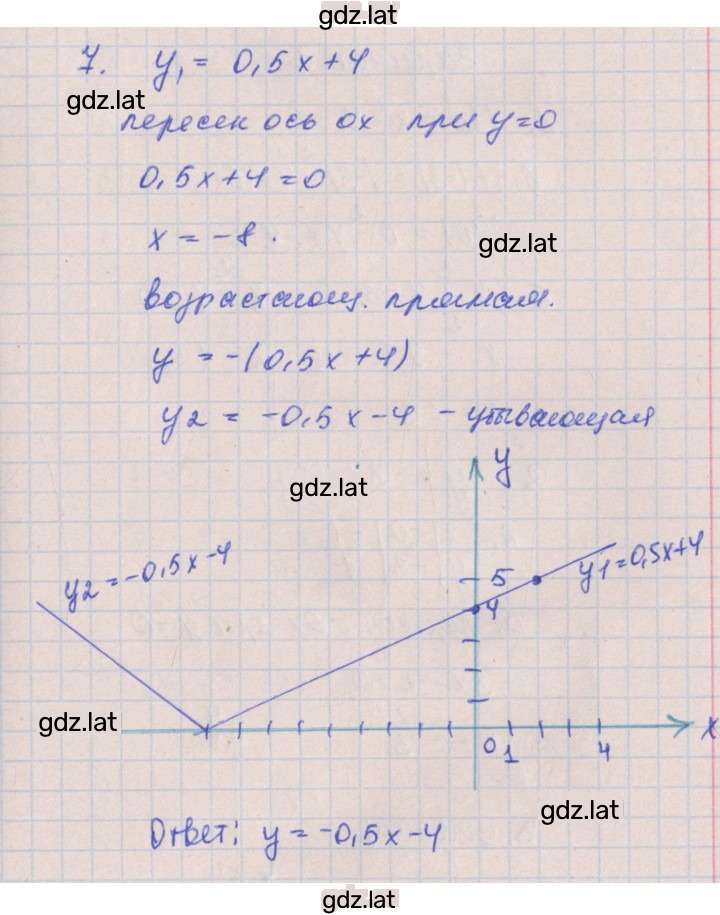 gdz.lat
7. y₁ = 0,5x+4
gdz.lat
пересек ось ох при y=0
0,5x+4=0
x = -8.
gdz.lat
возрастающ. прямая.
y = -(0,5x+4)
y2 = -0,5x-4 - убывающая
gdz.lat
y
y2 = -0,5x-4
5
y1=0,5x+4
4
gdz.lat
0 1 4 x
gdz.lat
Ответ: y = -0,5x-4
gdz.lat